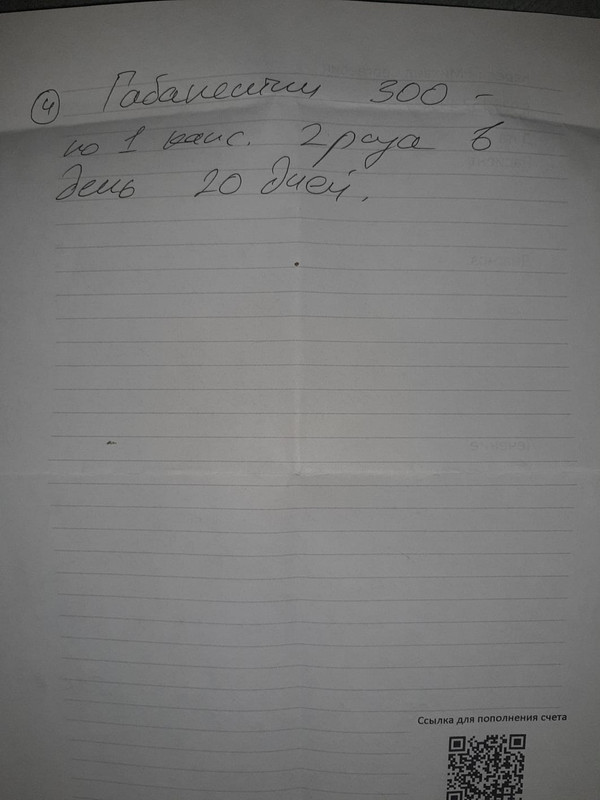 ④ Габапентин 300 -
по 1 капс. 2 раза в
день 20 дней.
Ссылка для пополнения счета